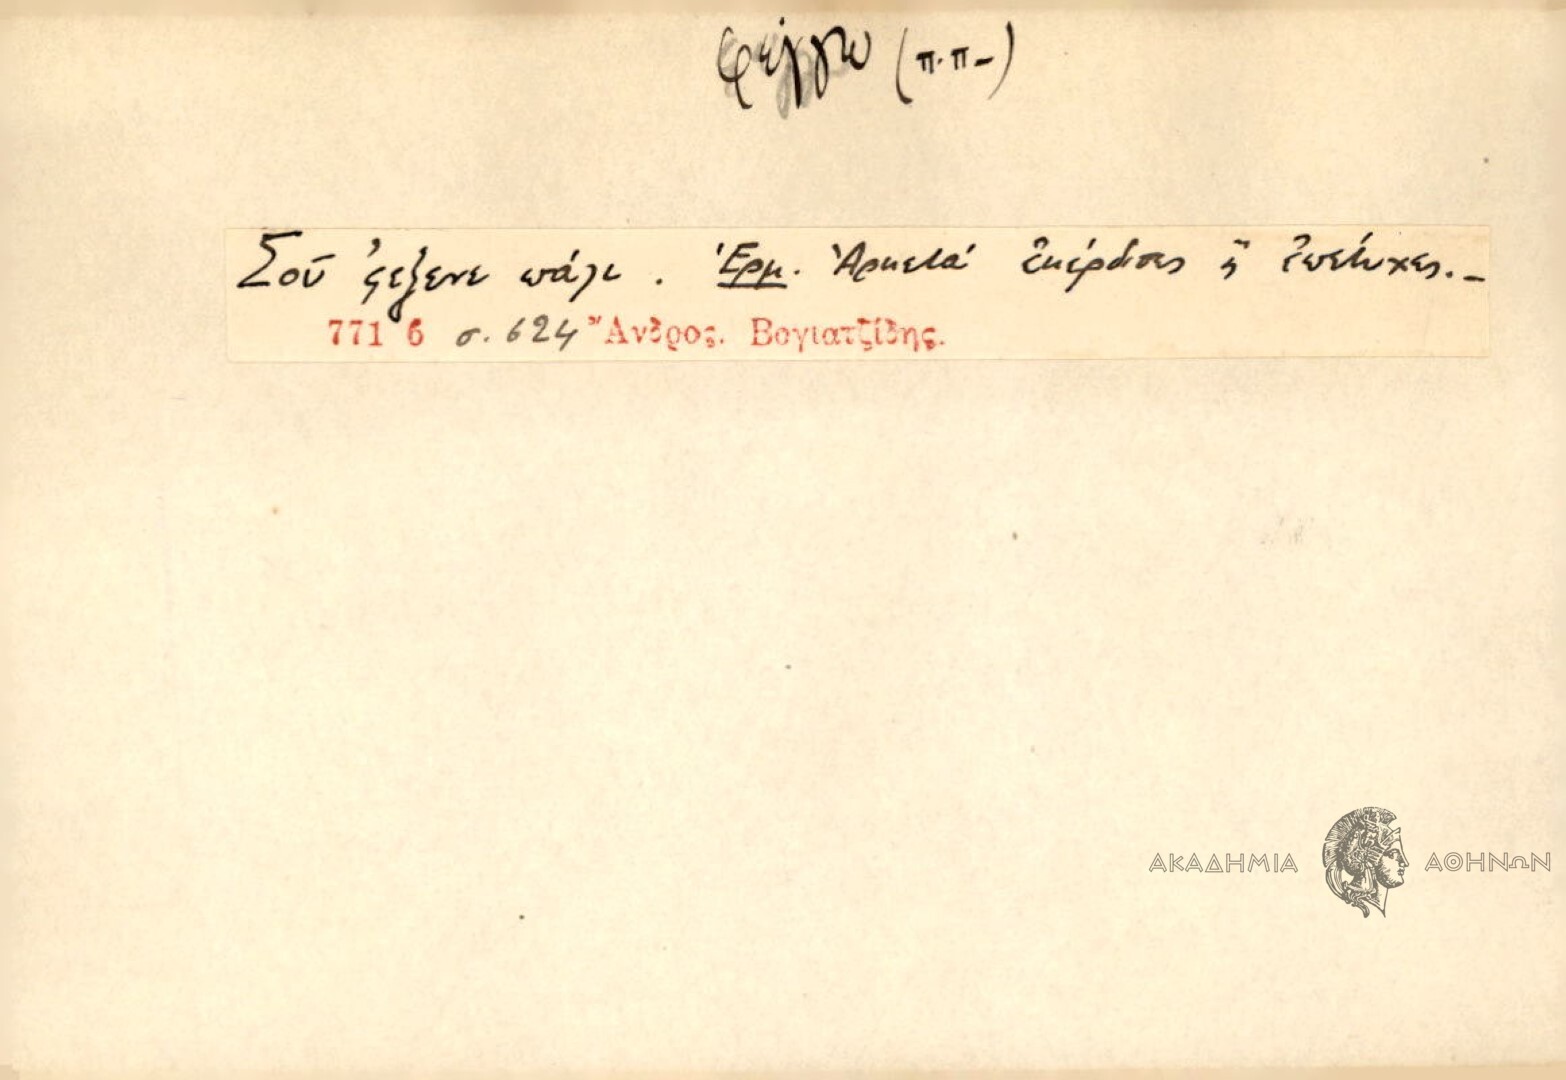 φέγγω (π.π-)
Σοῦ ἔφεξενε πάλι. Ἑρμ. Ἀρκετά ἐκέρδισες ἤ ἐπέτυχες.-
771 6 σ. 624 Ἄνδρος. Βογιατζίδης.
ΑΚΑΔΗΜΙΑ ΑΘΗΝΩΝ